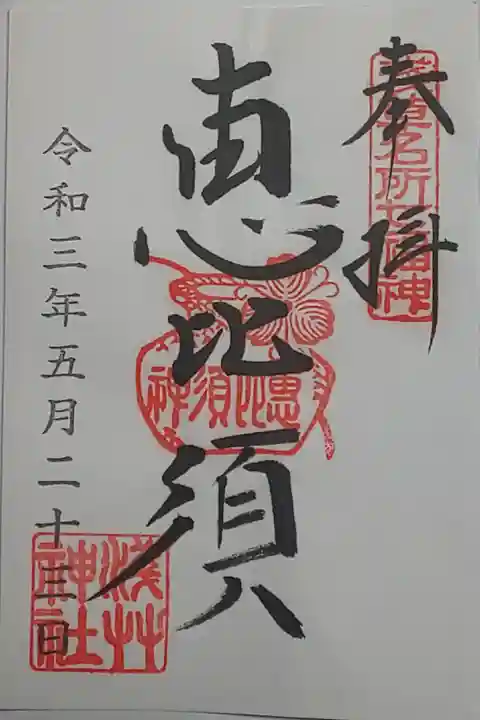 奉拝
浅草名所七福神
恵比須
惠比須神
令和三年五月二十三日
浅草神社